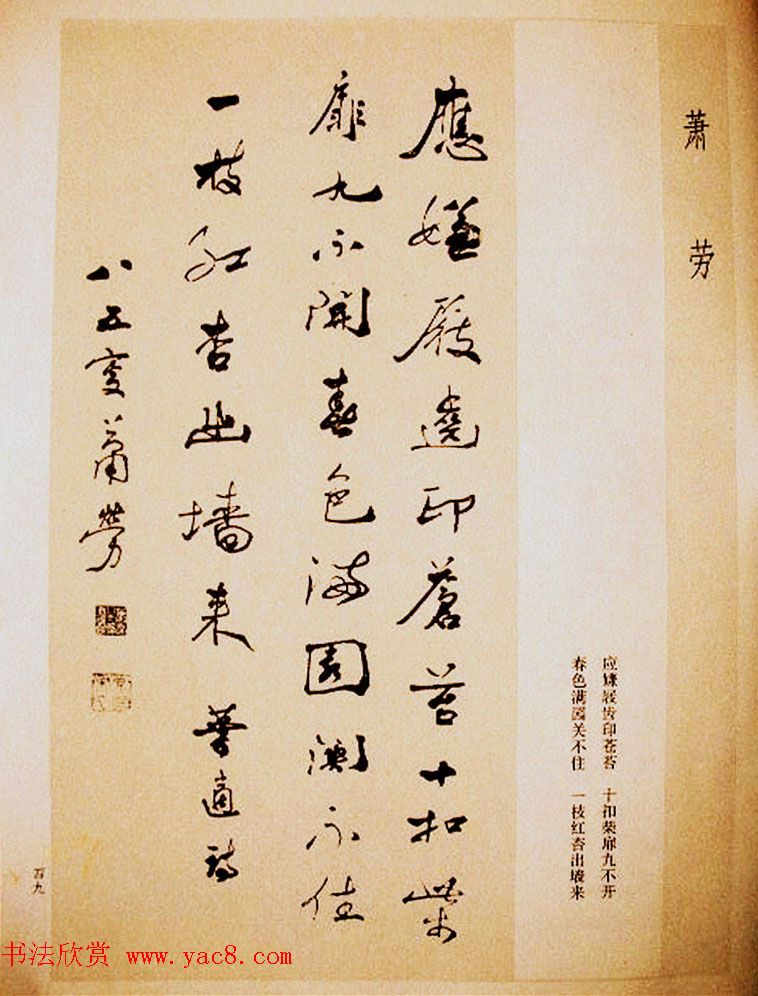 萧 劳
應嫌屐遶印蒼苔十扣柴
扉九不開春色滿園關不住
一枝紅杏出墻來 葉適詩
八五叟蕭勞
应嫌屐齿印苍苔 十扣柴扉九不开
春色满园关不住 一枝红杏出墙来
百九
书法欣赏 www.yac8.com